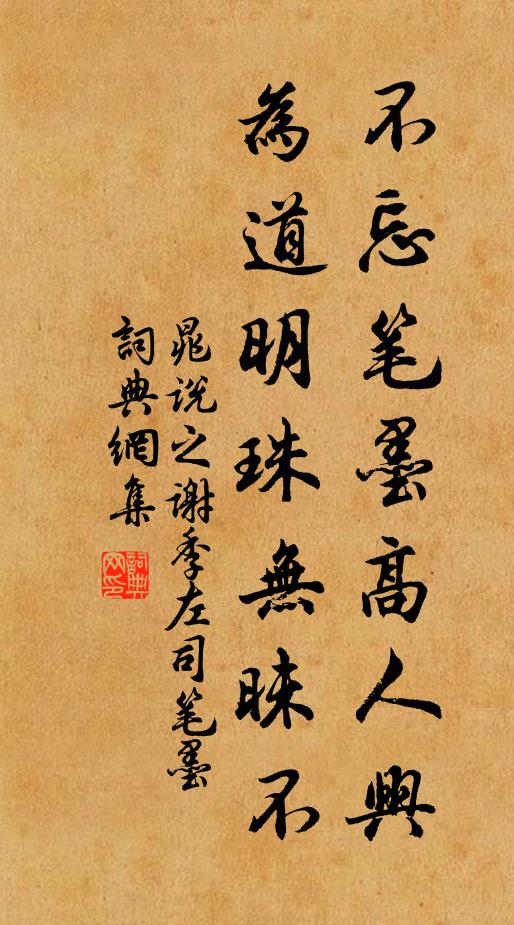 不忘笔墨高人興
為道明珠無昧不
晁説之謝季左司笔墨
詞典網集
詞典网印